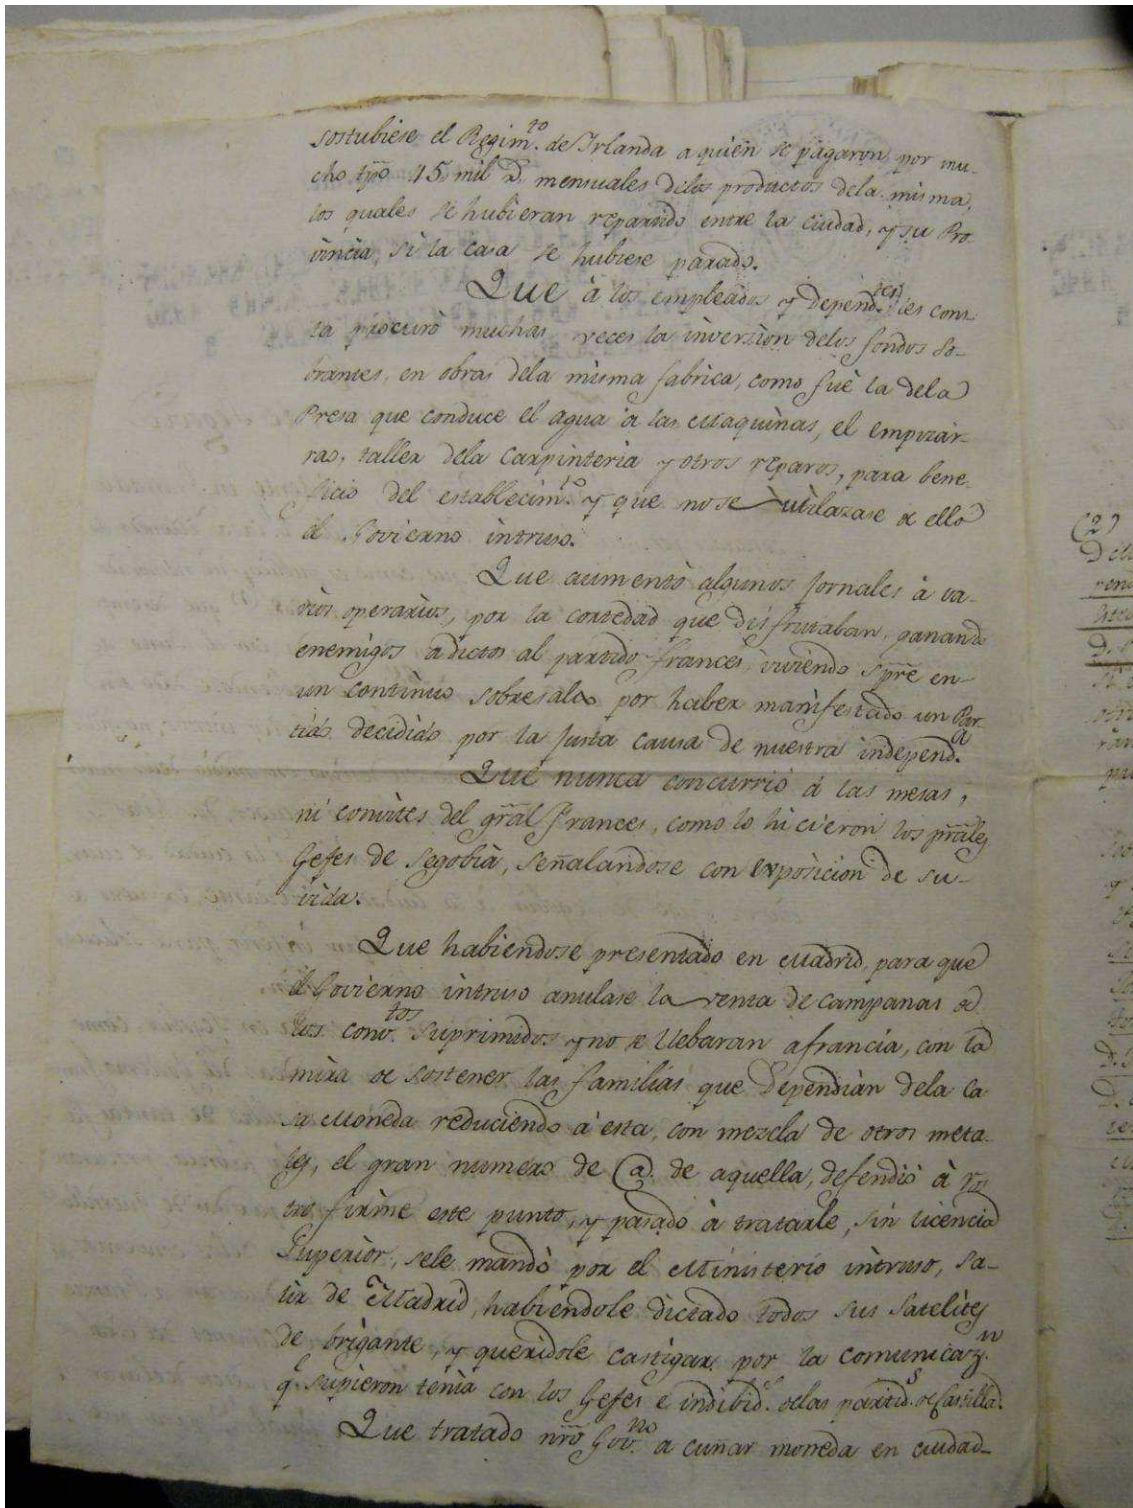 sostubiese el Regim.to de Irlanda a quien se pagaron por mu-
cho tpo 15 mil rs. mensuales delos productos dela misma,
los quales se hubieran repartido entre la Ciudad, y su Pro-
vincia, si la casa se hubiese parado.
Que à los empleados y depend.tes les cons-
ta procurò muchas veces la inversion delos fondos so-
brantes, en obras dela misma fabrica, como fuè la dela
Presa que conduce el agua à las Maquinas, el empizar-
ras, taller dela Carpinteria y otros reparos, para bene-
ficio del establecim.to y que no se utilazase de ello
el Govierno intruso.
Que aumentò algunos jornales à va-
rios operarios, por la cortedad que disfrutaban, ganando
enemigos adictos al partido frances, viviendo spre en
un continuo sobresalto por haber manifestado un Par-
tido decidido por la Justa causa de nuestra independ.a
Que nunca concurriò à las mesas,
ni convites del gral frances, como lo hicieron los prales
Gefes de Segobia, señalandose con exposicion de su
vida.
Que habiendose presentado en Madrid, para que
el Govierno intruso anulase la venta de campanas de
los conv.tos suprimidos y no se llebaran a francia, con la
mira de sostener las familias que dependian dela ca
sa Moneda reduciendo à esta, con mezcla de otros meta-
les, el gran numero de @. de aquella, defendiò à ros
tro firme este punto, y pasado à tratarle, sin licencia
Superior, sele mandò por el Ministerio intruso, sa-
lir de Madrid, habiendole dictado todos sus satelites
de brigante, y queridole castigar, por la comunicaz.n
q.e supieron tenia con los Gefes è indibid.s delas partid.s de Castilla.
Que tratado nro Gov.no a cuñar moneda en ciudad-
(2)